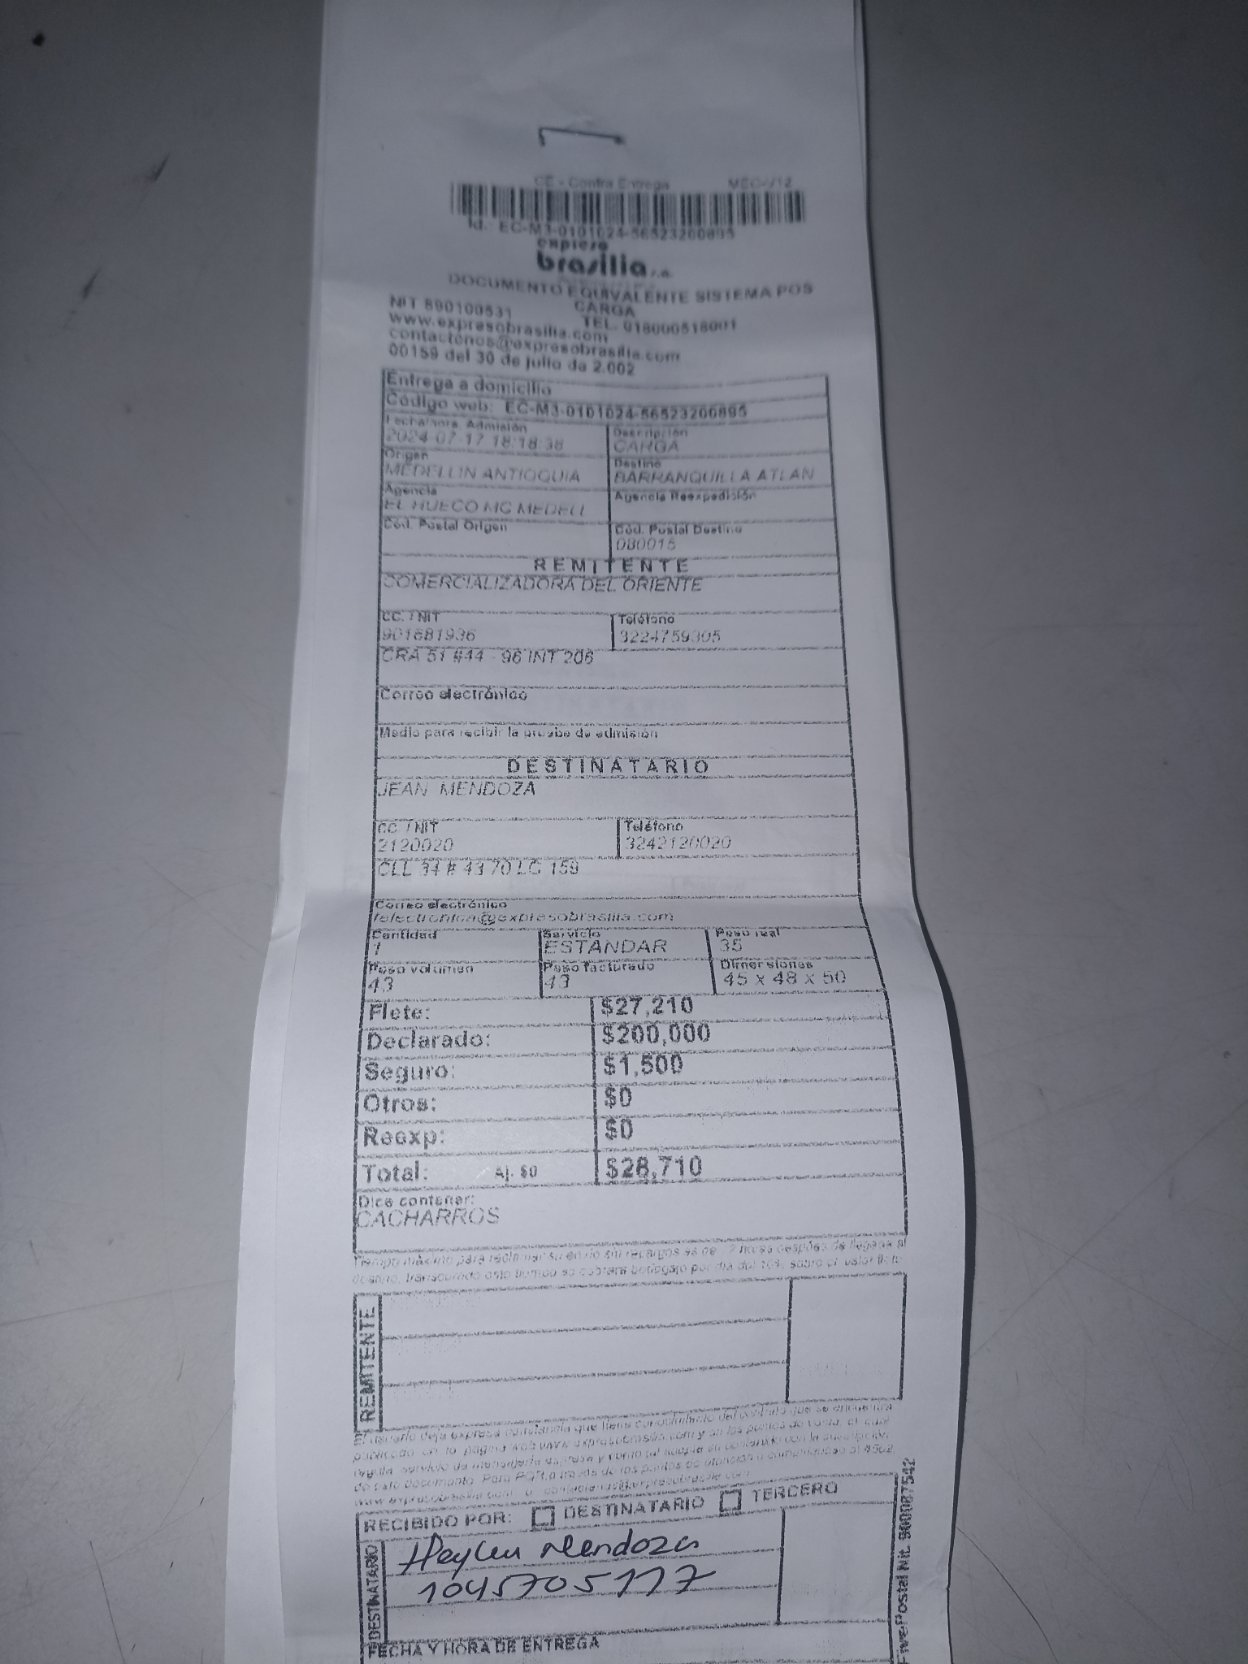 CE - Contra Entrega MEC-V12
Id.: EC-M3-0101024-56523200895
expreso
brasilia s.a.
DOCUMENTO EQUIVALENTE SISTEMA POS
CARGA
NIT 890100531 TEL. 018000518001
www.expresobrasilia.com
contactenos@expresobrasilia.com
00159 del 30 de julio da 2.002
Entrega a domicilio
Código web: EC-M3-0101024-56523200895
Fecha/hora Admisión Descripción
2024-07-17 18:18:38 CARGA
Origen Destino
MEDELLIN ANTIOQUIA BARRANQUILLA ATLAN
Agencia Agencia Reexpedición
EL HUECO MC MEDELL
Cód. Postal Origen Cód. Postal Destino
080015
REMITENTE
COMERCIALIZADORA DEL ORIENTE
CC. / NIT Teléfono
901681936 3224759305
CRA 51 #44 - 96 INT 206
Correo electrónico
Medio para recibir la prueba de admisión
DESTINATARIO
JEAN MENDOZA
CC / NIT Teléfono
2120020 3242120020
CLL 34 # 43 70 LC 159
Correo electrónico
felectronica@expresobrasilia.com
Cantidad Servicio Peso real
1 ESTANDAR 35
Peso volumen Peso facturado Dimensiones
43 43 45 x 48 x 50
Flete: $27,210
Declarado: $200,000
Seguro: $1,500
Otros: $0
Reexp: $0
Total: Aj. $0 $28,710
Dice contener:
CACHARROS
Tiempo máximo para reclamar su envío sin recargos es de 72 horas después de llegada al
destino, transcurrido este tiempo se cobrará bodegaje por día del 10% sobre el valor flete
REMITENTE
El usuario deja expresa constancia que tiene conocimiento del contrato que se encuentra
publicado en la página web www.expresobrasilia.com y en los puntos de venta, el cual
RECIBIDO POR: DESTINATARIO TERCERO
DESTINATARIO
Heylen Mendoza
1045705117
FECHA Y HORA DE ENTREGA
FivePostal Nit. 900087542